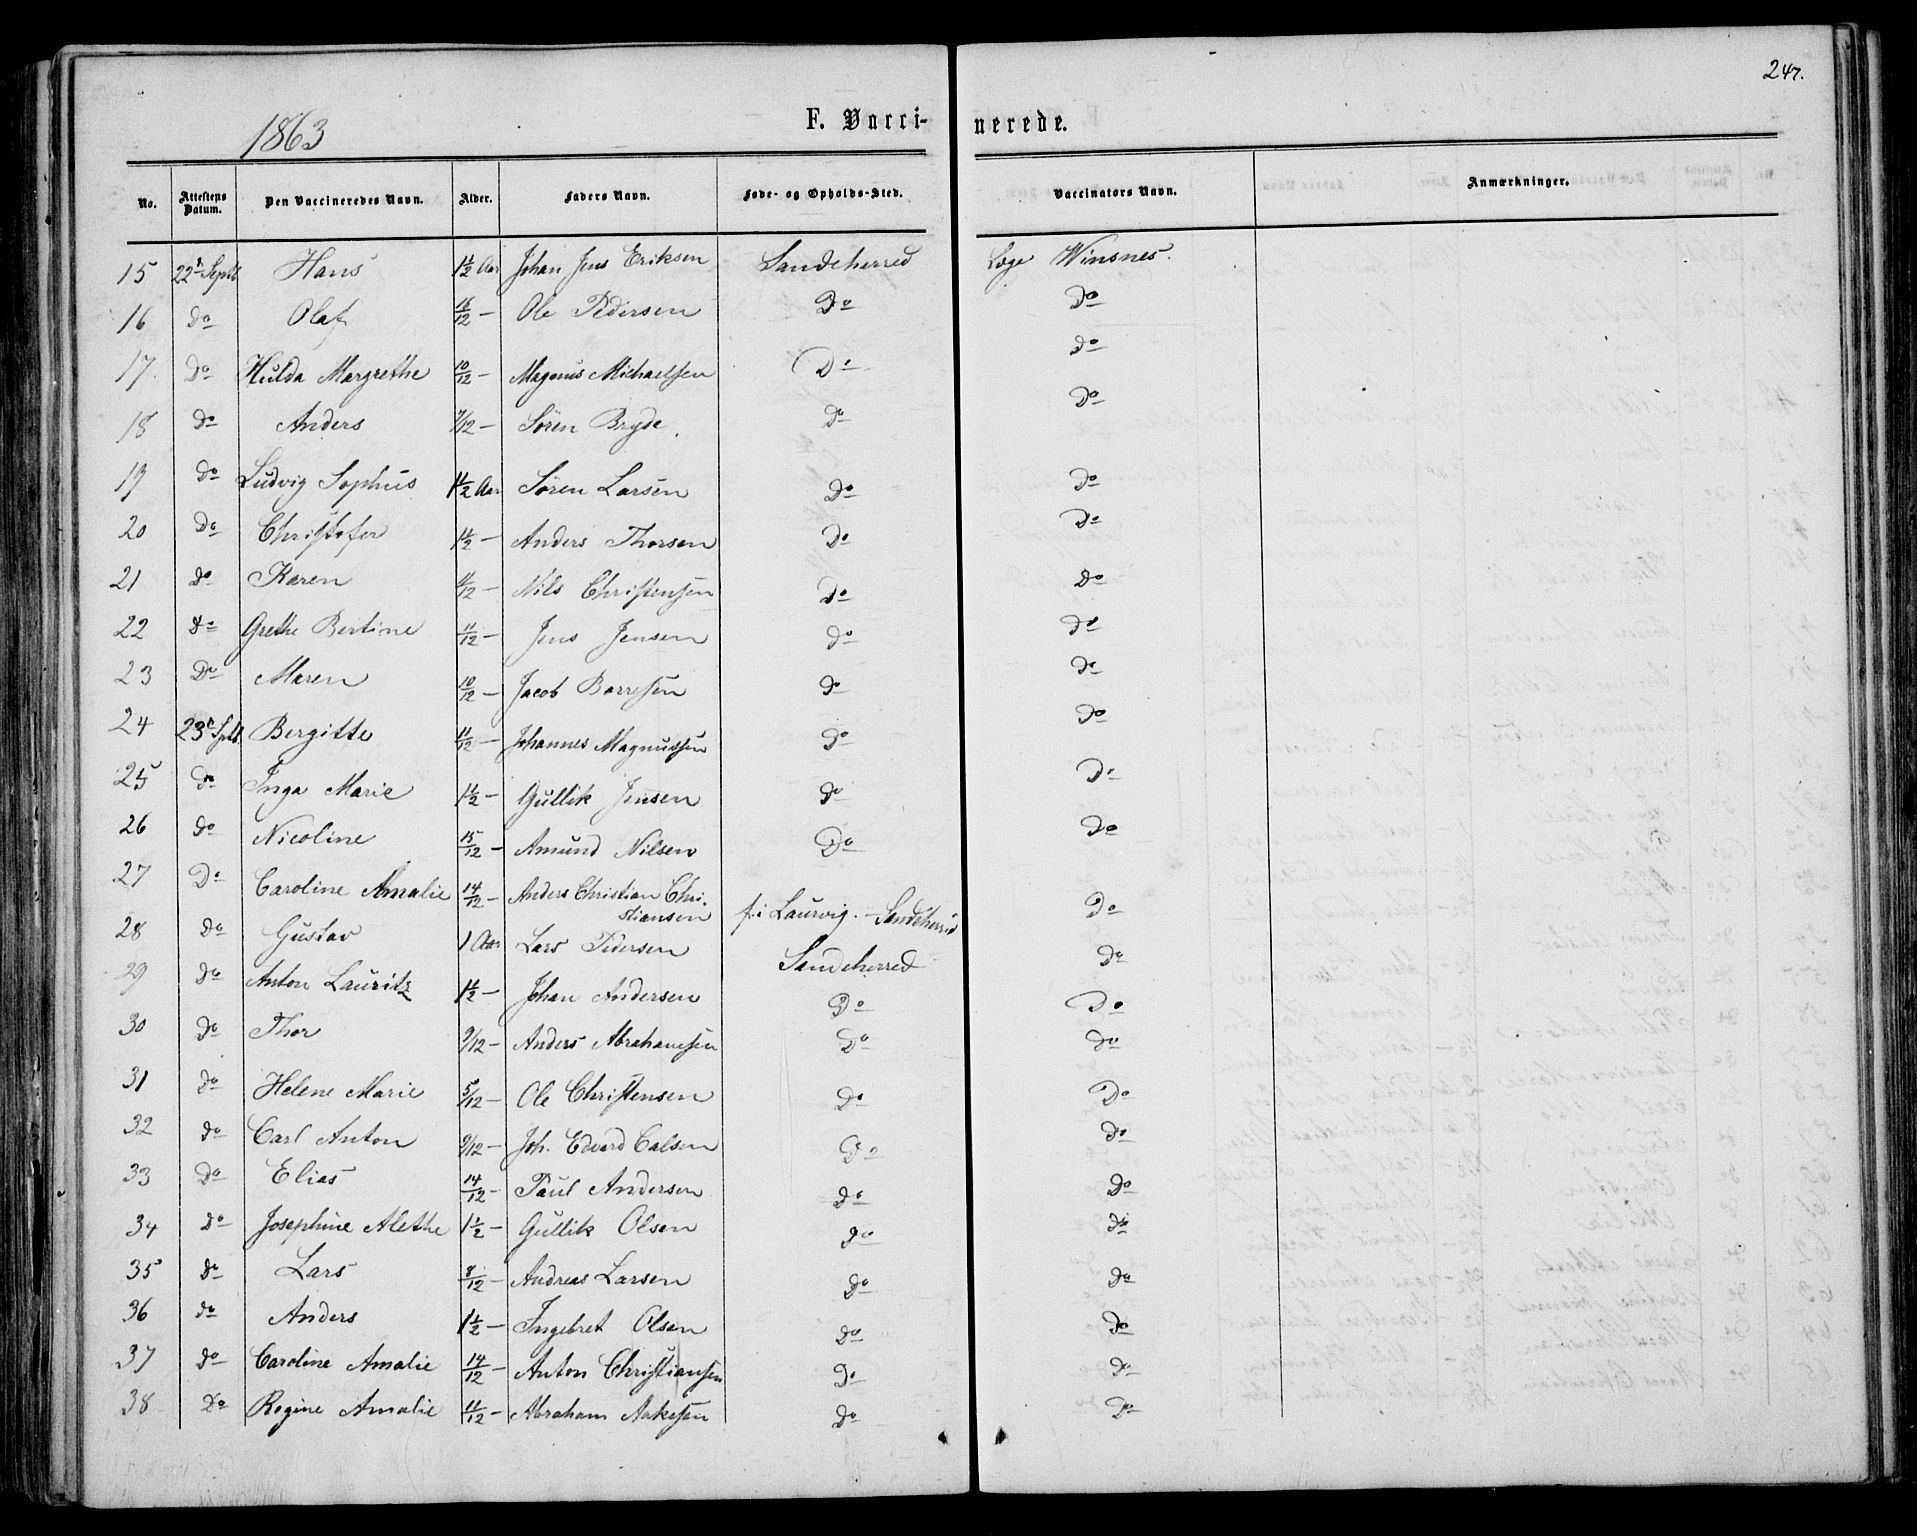 247.
1863 F. Vacci- nerede.
No. Attestens Datum. Den Vaccineredes Navn. Alder. Faders Navn. Føde- og Opholds-Sted. Vaccinators Navn. Anmærkninger.
15 22 Septb Hans 1½ Aar Johan Jens Eriksen Sandeherred Læge Winsnes.
16 do Olaf 16/12 - Ole Pedersen Do Do
17. Do Hulda Margrethe 10/12 - Magnus Michaelsen Do do
18 do Anders 7/12 - Søren Bryde. do Do
19 do Ludvig Sophus 1½ Aar Søren Larsen Do Do
20 Do Christofer 1½ - Anders Thorsen Do Do
21 do Karen 11/12 - Nils Christensen Do do
22 do Grethe Bertine 11/12 - Jens Jensen do do
23 Do Maren 10/12 - Jacob Borresen do do
24 23 Sptb. Bergitte 11/12 - Johannes Magnussen do do
25 Do Inga Marie 1½ - Gullik Jensen do Do
26 do Nicoline 15/12 - Amund Nilsen Do do
27 Do Caroline Amalie 14/12 - Anders Christian Chri-
stiansen f. i Laurvig. - Sandeherred Do
28 do Gustav 1 Aar Lars Pedersen Sandeherred do
29 do Anton Lauritz 1½ - Johan Andersen Do Do
30 do Thor 9/12 - Anders Abrahamsen Do do
31 do Helene Marie 5/12 - Ole Christensen Do Do
32 do Carl Anton 9/12 - Joh. Edvard Calsen Do do
33 Do Elias 14/12 - Paul Andersen do do
34 do Josephine Alethe 1½ - Gullik Olsen do do
35 do Lars 8/12 - Andreas Larsen do do
36 do Anders 1½ - Ingebret Olsen do Do
37 do Caroline Amalie 14/12 - Anton Christiansen Do do
38 Do Regine Amalie 11/12 - Abraham Aakesen do Do